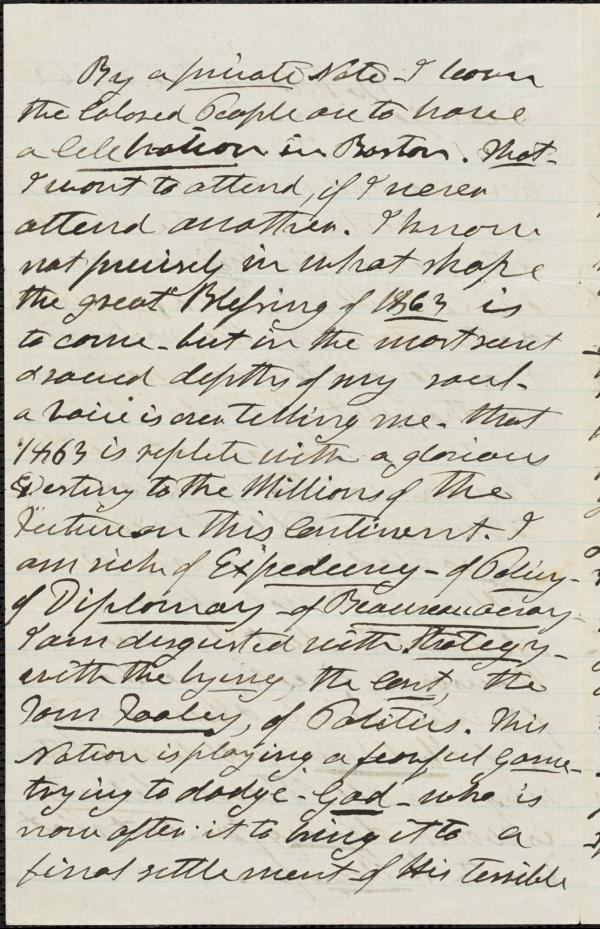 By a private Note - I learn
the Colored People are to have
a Celebration in Boston. That -
I want to attend, if I never
attend another. I know
not precisely in what shape
the great Blessing of 1863 is
to come - but in the most secret
& sacred depths of my soul -
a voice is ever telling me - that
1863 is replete with a glorious
Destiny to the Millions of the
Future on this Continent. I
am sick of Expediency - of Policy -
of Diplomacy - of Beaureaucracy -
I am disgusted with Strategy -
with the lying, the Cant, the
Tom Fooley, of Politics. This
Nation is playing a fearful game -
trying to dodge - God - who is
now after it to bring it to a
final settlement of His terrible